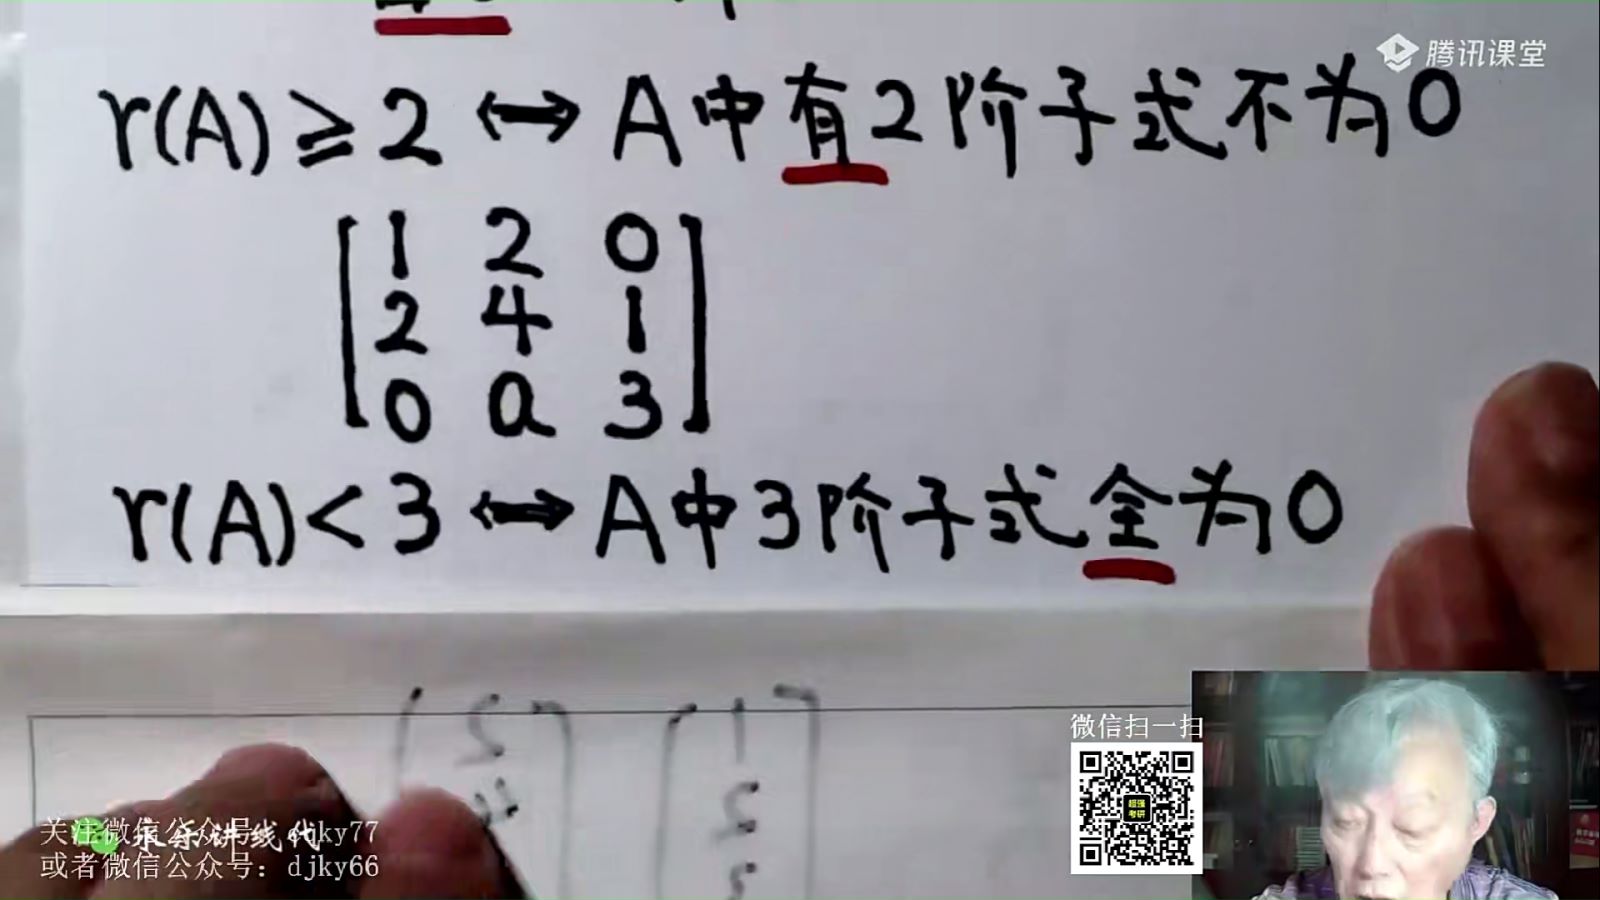 腾讯课堂
r(A) ≥ 2 ↔ A中有2阶子式不为0
1 2 0
2 4 1
0 a 3
r(A) < 3 ↔ A中3阶子式全为0
微信扫一扫
超强
考研
永乐讲线代
关注微信公众号: djky77
或者微信公众号: djky66